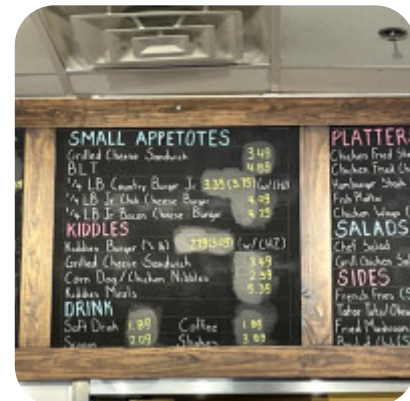 SMALL APPETOTES
Grilled Cheese Sandwich 3.49
BLT 4.89
1/4 LB Country Burger Jr. 3.39 (3.75)
1/4 LB Jr. Club Cheese Burger 4.09
1/4 LB Jr. Bacon Cheese Burger 4.79
KIDDLES
Kiddies Burger
Grilled Cheese Sandwich 3.49
Corn Dog/Chicken Nibbles 2.99
Kiddies Meals 5.39
DRINK
Soft Drink 1.89 Coffee 1.89
2.09 Shakes 3.89
PLATTER
Chicken Fried
Chicken Fried
Hamburger Steak
Fish Platter
Chicken Wings
SALADS
Chef Salad
Grill Chicken
SIDES
French Fries
Tator Tots/
Fried Mushroom